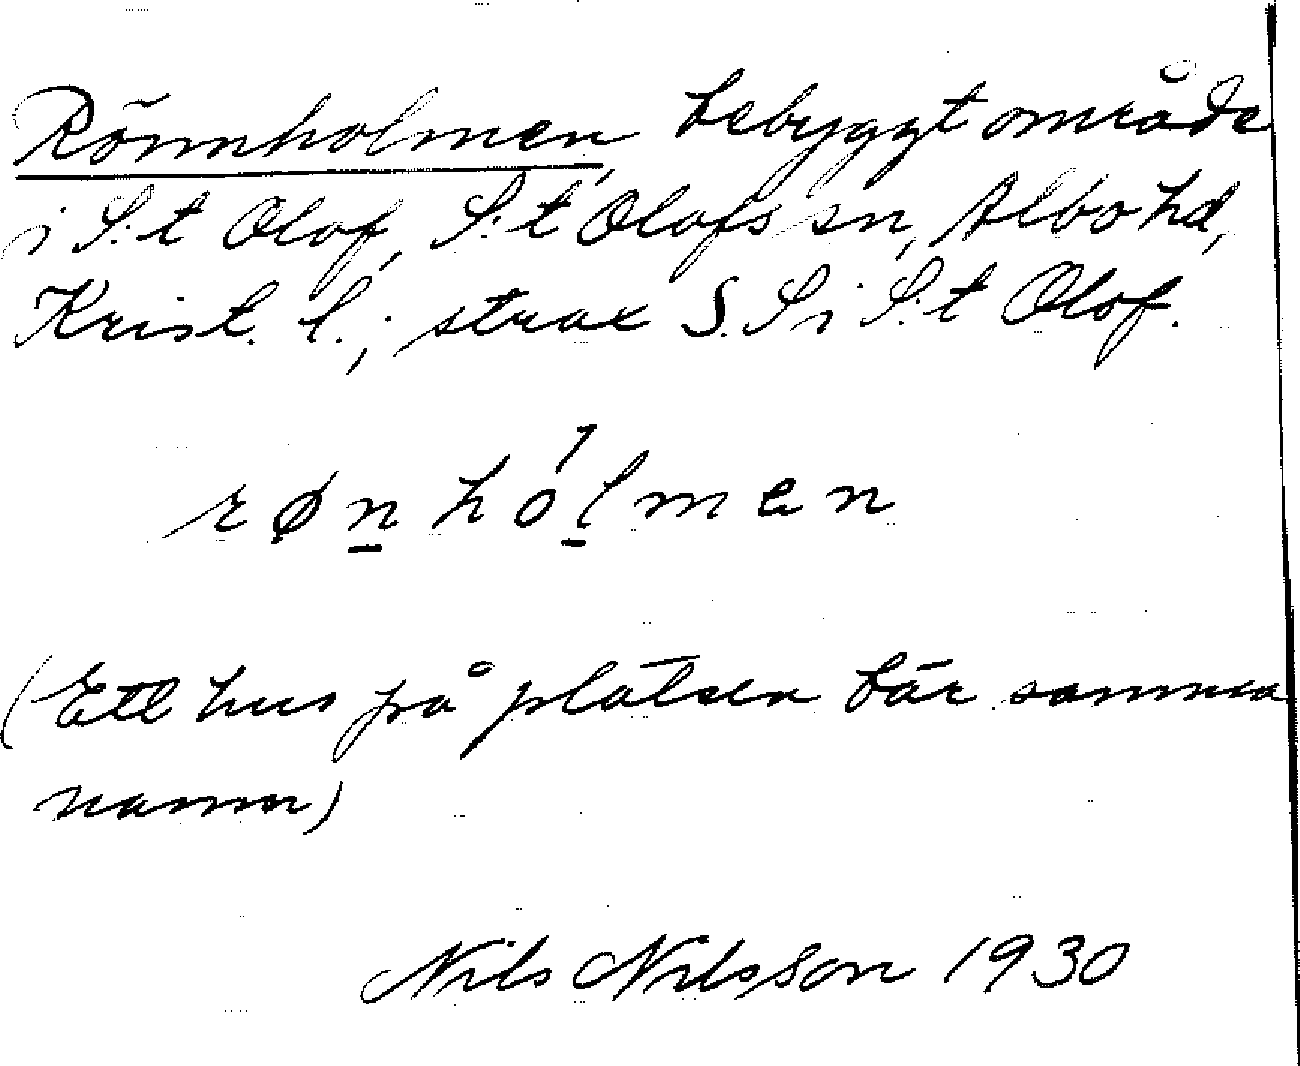 Rönnholmen, bebyggt område
i S:t Olof, S:t Olofs sn, Albo hd,
Krist. l.; strax S. S i S:t Olof.
røn hólmen
(Ett hus på platsen bär samma
namn)
Nils Nilsson 1930